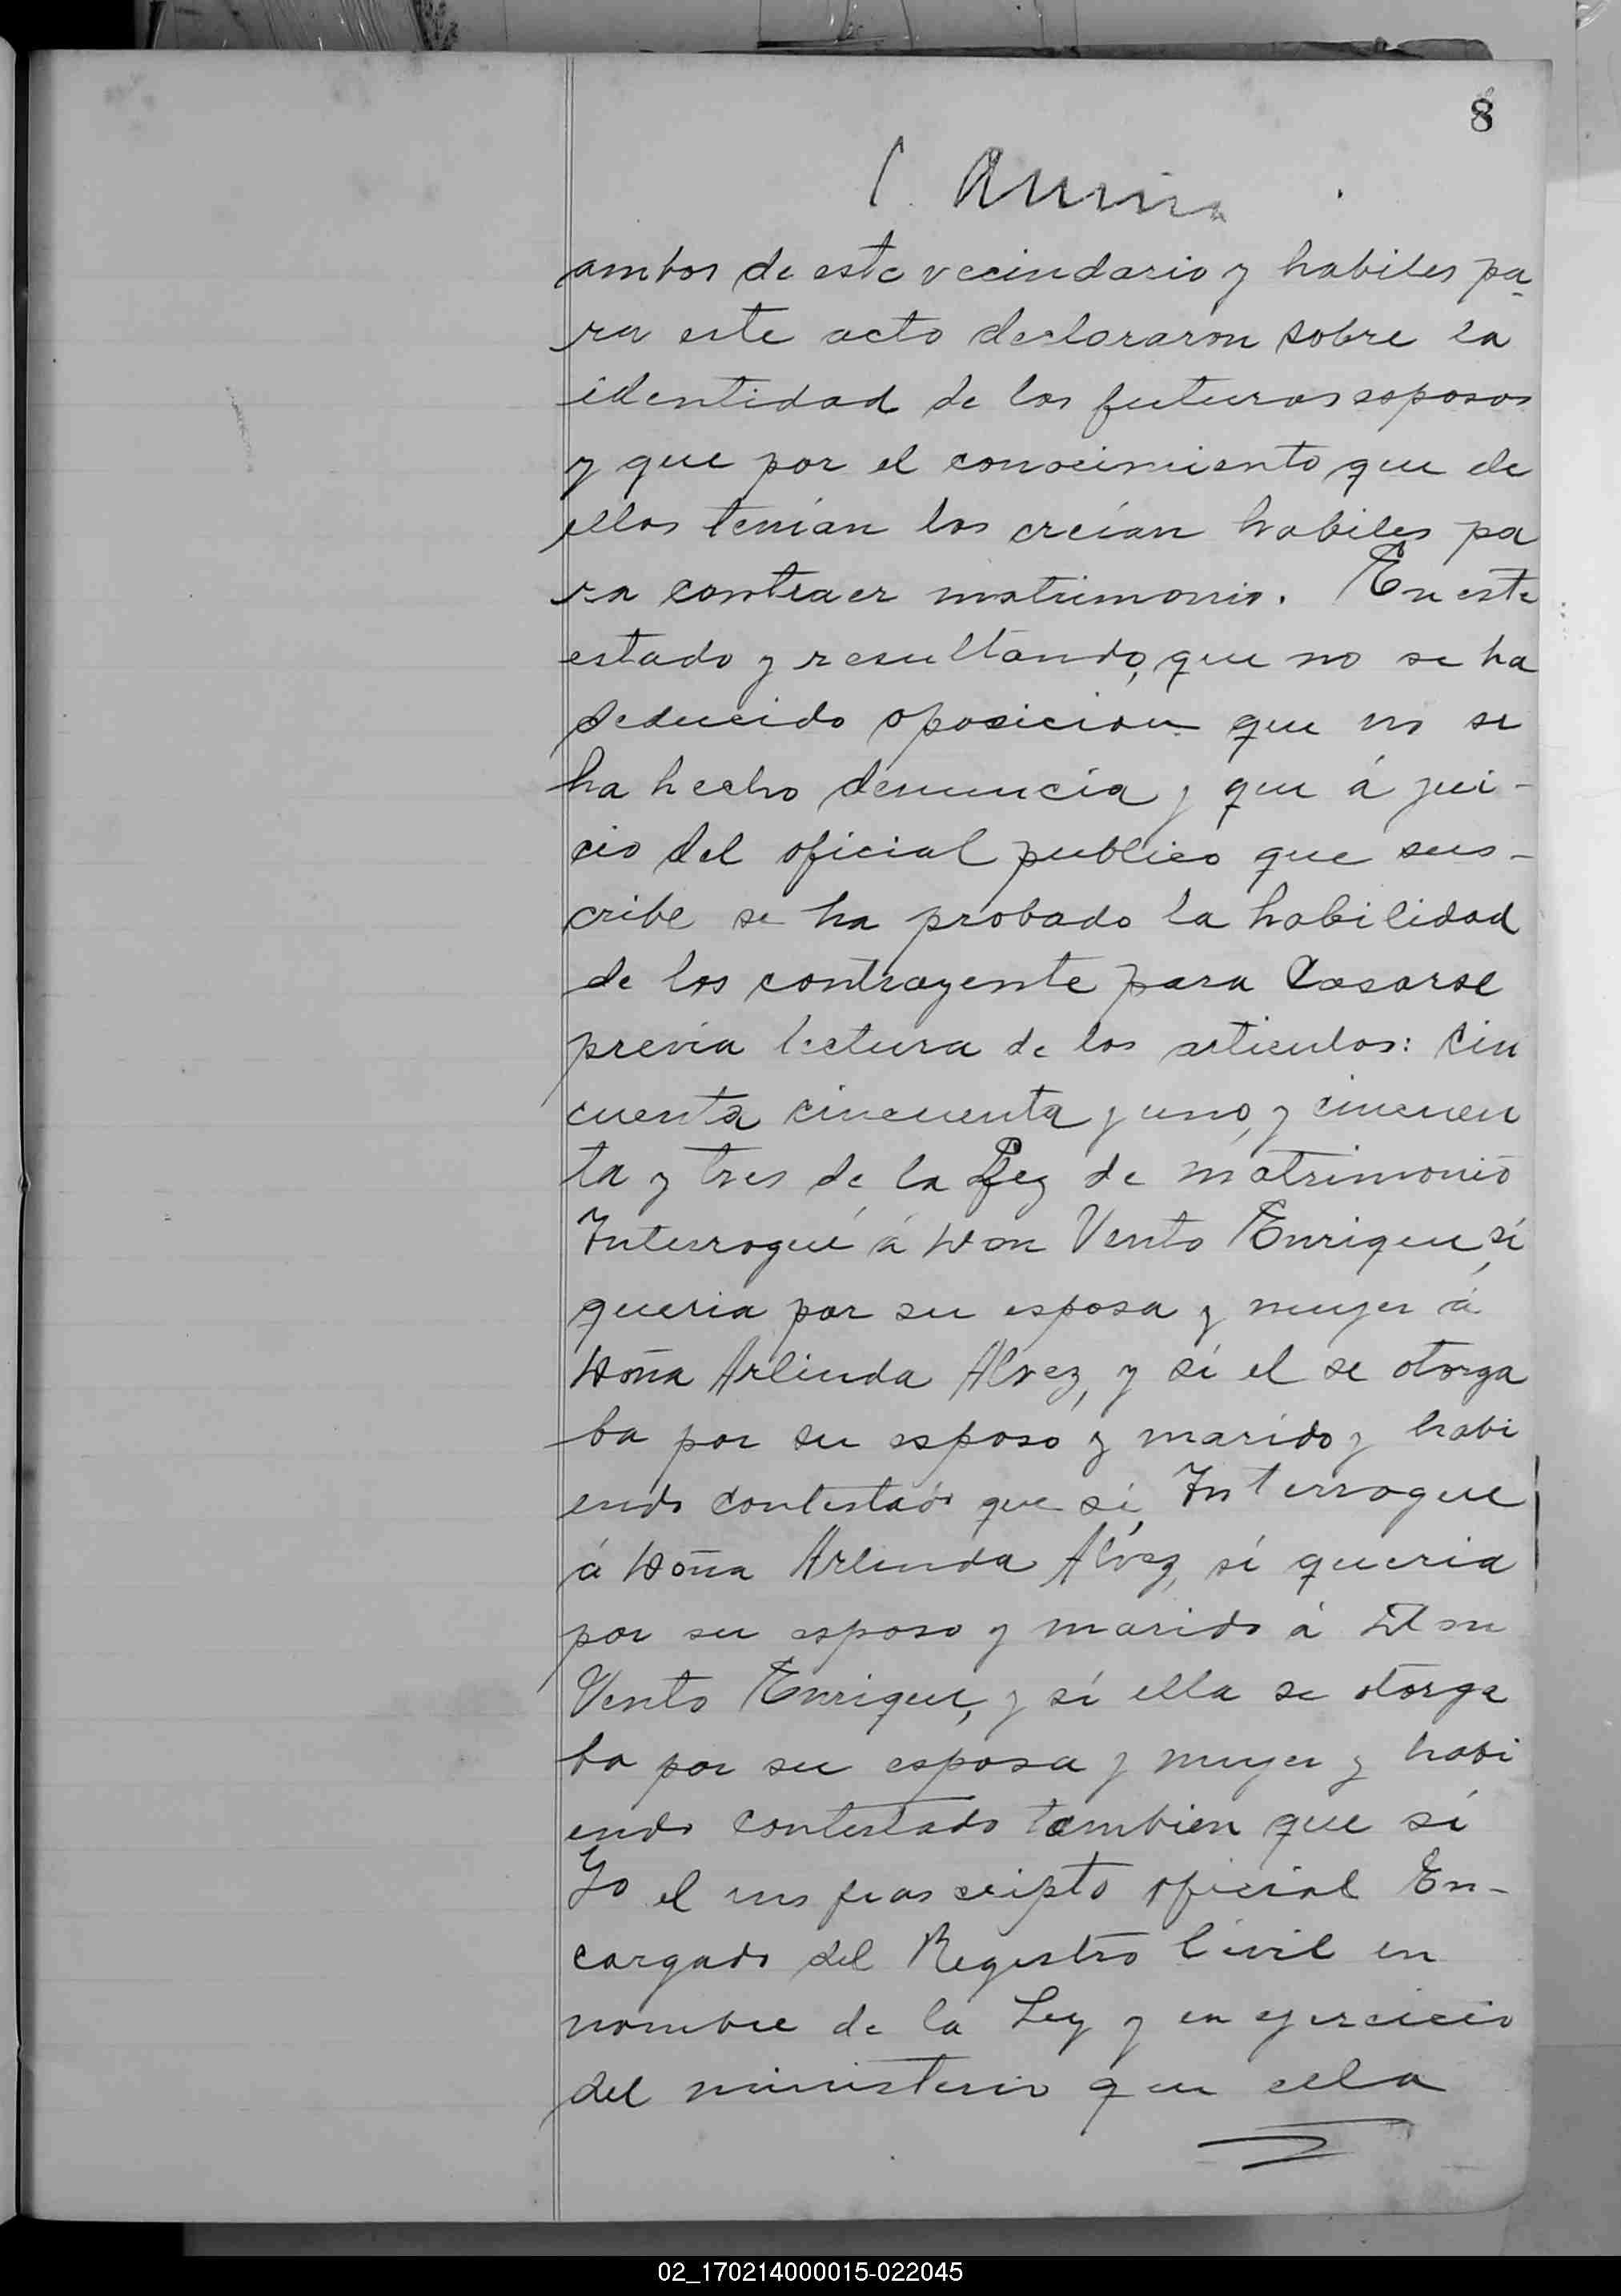 8
ambos de este vecindario y habiles pa-
ra este acto declararon sobre la
identidad de los futuros esposos
y que por el conocimiento que de
ellos tenían los creían habiles pa
ra contraer matrimonio. En este
estado y resultando, que no se ha
deducido oposicion que no se
ha hecho denuncia y que á jui-
cio del oficial publico que sus-
cribe se ha probado la habilidad
de los contrayente para Casarse
previa lectura de los articulos: cin
cuenta cincuenta y uno, y cincuen
ta y tres de la Ley de matrimonio
Interrogué á Don Vento Enrique, sí
queria por su esposa y mujer á
Doña Arlinda Alvez, y sí el se otorga
ba por su esposo y marido y habi
endo contestado que sí, Interrogue
á Doña Arlinda Alvez, sí queria
por su esposo y marido á Don
Vento Enrique, y sí ella se otorga
ba por su esposa y mujer y habi
endo contestado tambien que sí
Yo el infrascripto oficial En-
cargado del Registro Civil en
nombre de la Ley y en ejercicio
del ministerio que ella
02_170214000015-022045